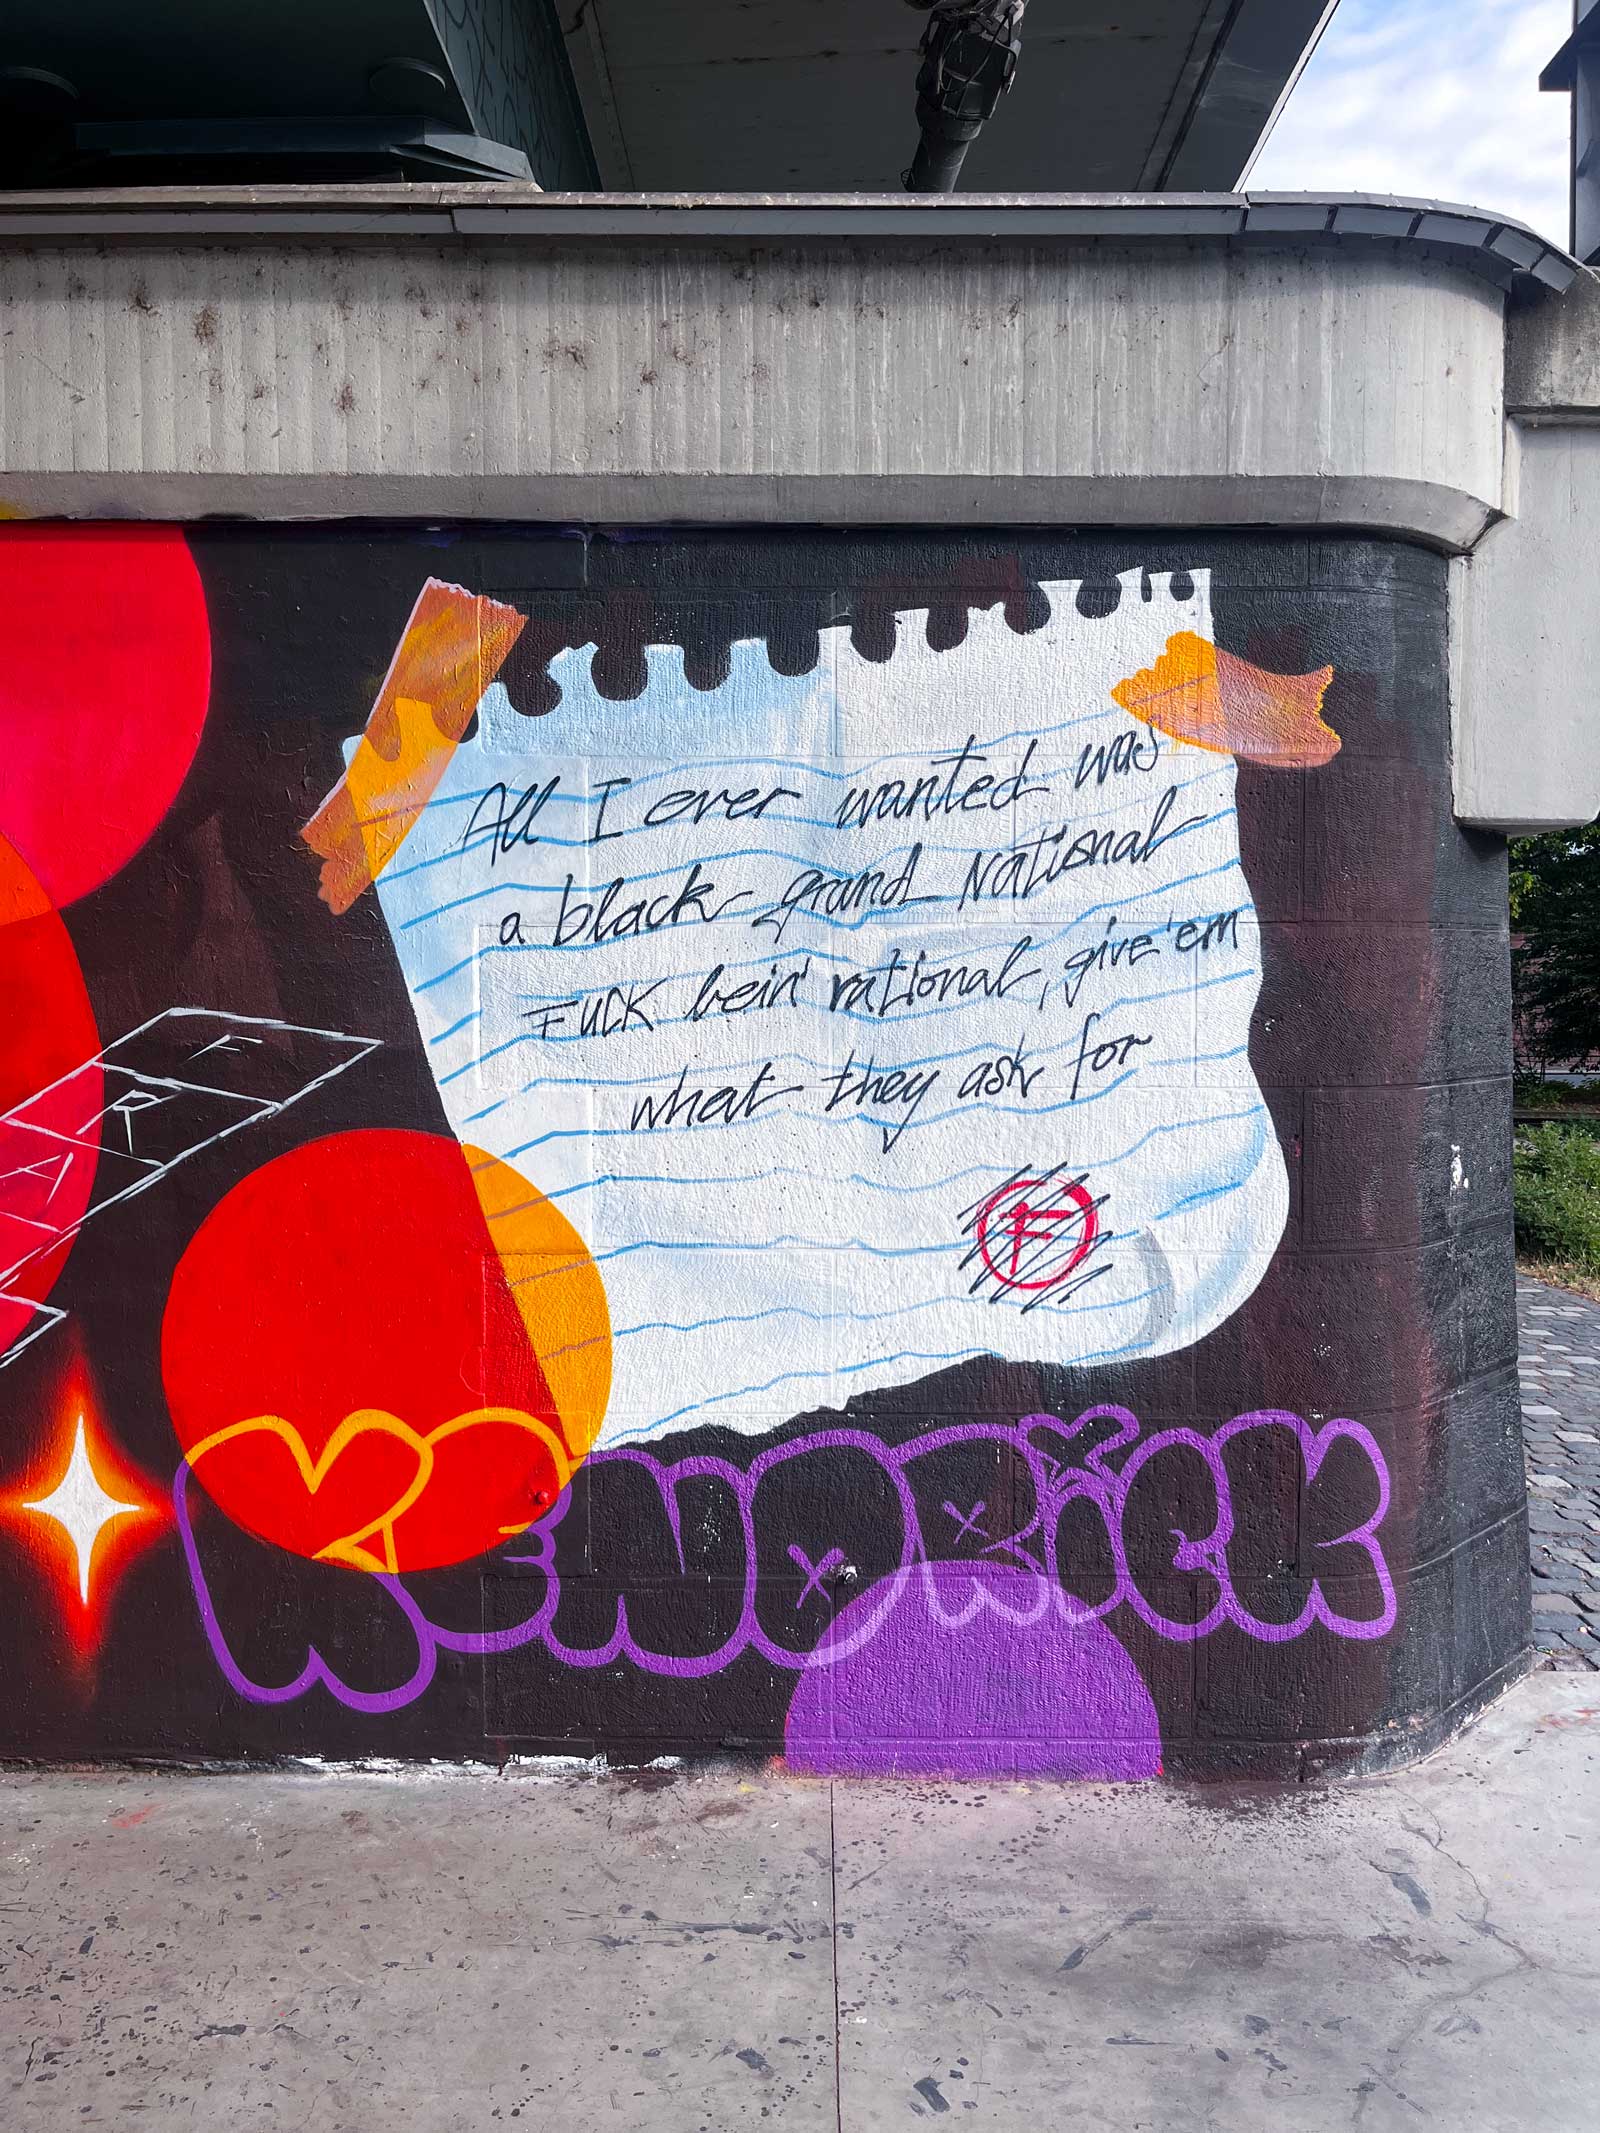 All I ever wanted was
a black grand National
FUCK bein' rational, give 'em
what they ask for
F
F
R
A
KENDRiCK